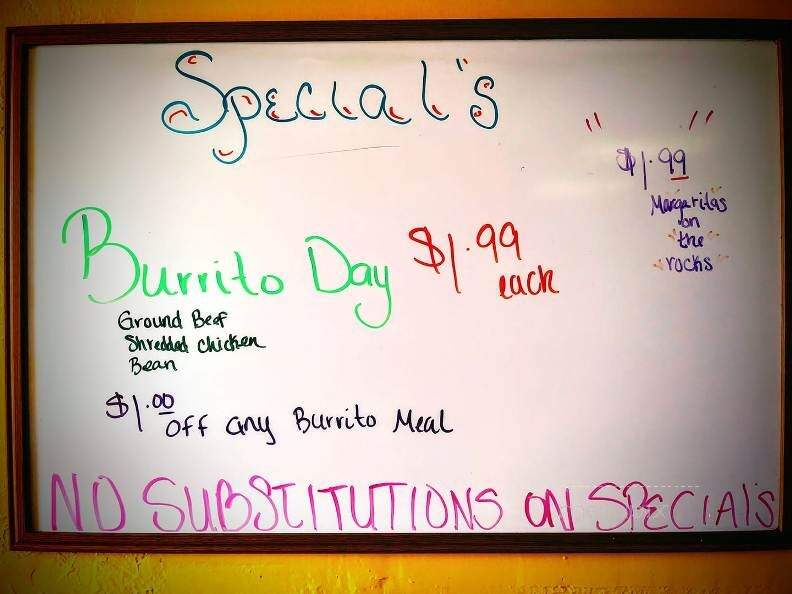 Special's
Burrito Day $1.99 each
Ground Beef
Shredded Chicken
Bean
$1.00 off any Burrito Meal
" $1.99 "
Margaritas
on
the
rocks
NO SUBSTITUTIONS ON SPECIAl's